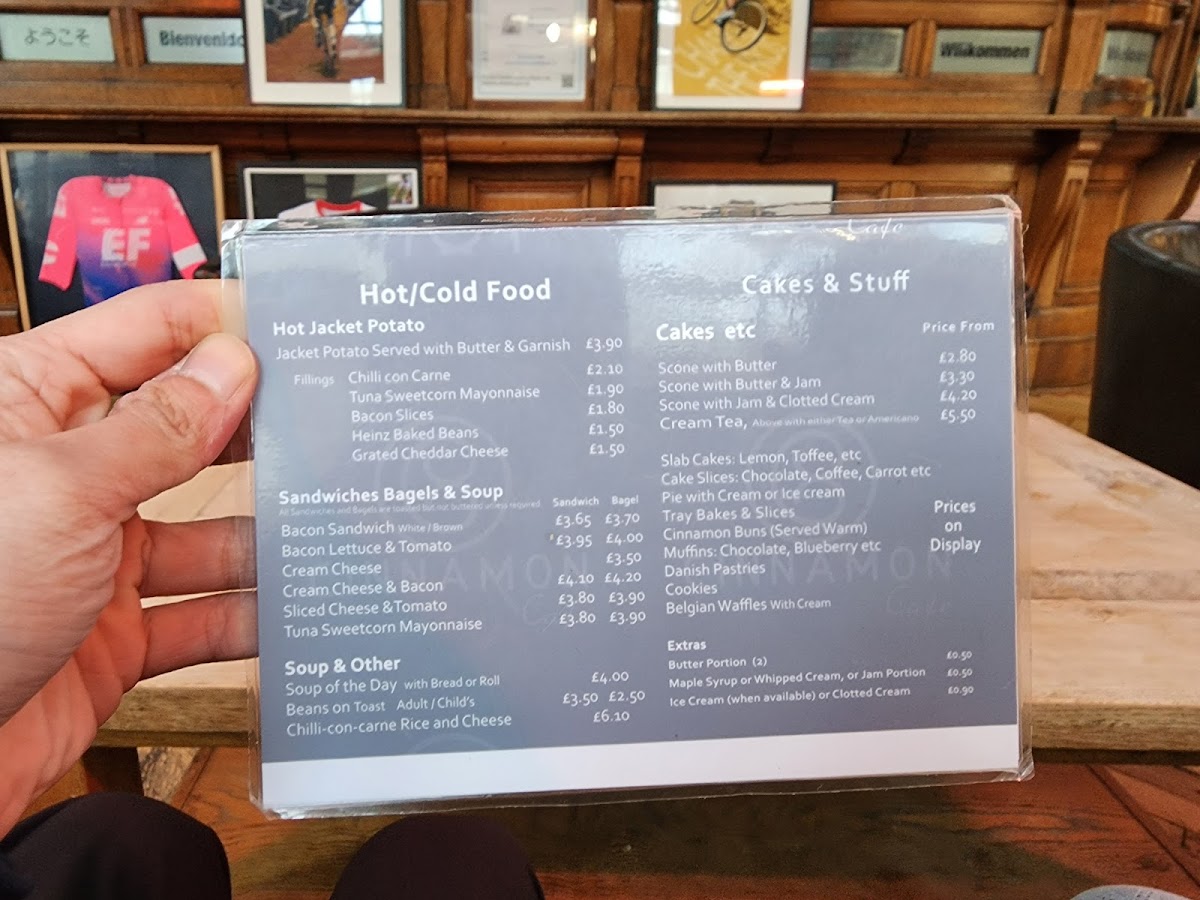 ようこそ
Bienvenido
Willkommen
EF
Cafe
Hot/Cold Food
Hot Jacket Potato
Jacket Potato Served with Butter & Garnish £3.90
Fillings Chilli con Carne £2.10
Tuna Sweetcorn Mayonnaise £1.90
Bacon Slices £1.80
Heinz Baked Beans £1.50
Grated Cheddar Cheese £1.50
Sandwiches Bagels & Soup Sandwich Bagel
All Sandwiches and Bagels are toasted but not buttered unless required
Bacon Sandwich White / Brown £3.65 £3.70
Bacon Lettuce & Tomato £3.95 £4.00
Cream Cheese £3.50
Cream Cheese & Bacon £4.10 £4.20
Sliced Cheese &Tomato £3.80 £3.90
Tuna Sweetcorn Mayonnaise £3.80 £3.90
Soup & Other
Soup of the Day with Bread or Roll £4.00
Beans on Toast Adult / Child's £3.50 £2.50
Chilli-con-carne Rice and Cheese £6.10
Cakes & Stuff
Cakes etc Price From
Scone with Butter £2.80
Scone with Butter & Jam £3.30
Scone with Jam & Clotted Cream £4.20
Cream Tea, Above with either Tea or Americano £5.50
Slab Cakes: Lemon, Toffee, etc
Cake Slices: Chocolate, Coffee, Carrot etc
Pie with Cream or Ice cream
Tray Bakes & Slices
Cinnamon Buns (Served Warm)
Muffins: Chocolate, Blueberry etc
Danish Pastries
Cookies
Belgian Waffles With Cream
Prices
on
Display
Extras
Butter Portion (2) £0.50
Maple Syrup or Whipped Cream, or Jam Portion £0.50
Ice Cream (when available) or Clotted Cream £0.90